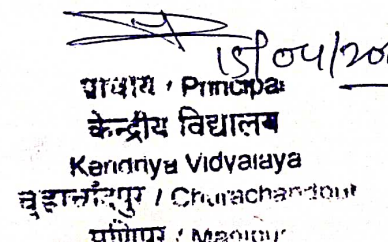 15/04/20
प्राचार्य / Principal
केन्द्रीय विद्यालय
Kendriya Vidyalaya
चुड़ाचाँदपुर / Churachandpur
मणिपुर / Manipur